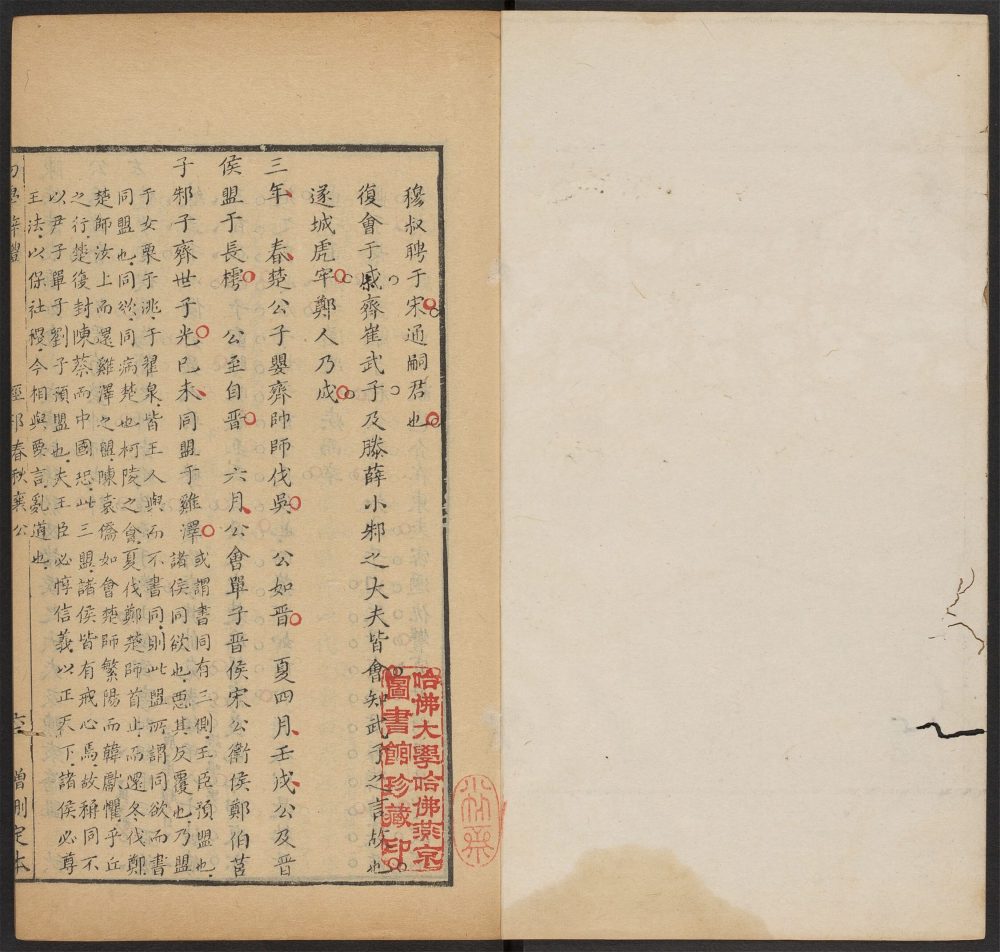 穆叔聘于宋通嗣君也
復會于戚齊崔武子及滕薛小邾之大夫皆會知武子之言故也
遂城虎牢鄭人乃成
三年 春楚公子嬰齊帥師伐吳 公如晉 夏四月壬戌公及晉
侯盟于長樗 公至自晉 六月公會單子晉侯宋公衛侯鄭伯莒
子邾子齊世子光己未同盟于雞澤
或謂書同有三例王臣預盟也
諸侯同欲也惡其反覆也乃盟
于女栗于洮于翟泉皆王人與而不書同則此盟所謂同欲而書
同盟也同欲同病楚也柯陵之會夏伐鄭楚師首止而還冬伐鄭
楚師汝上而還雞澤之盟陳袁僑如會楚師繁陽而韓獻懼乎丘
之行楚復封陳蔡而中國恐此三盟諸侯皆有戒心焉故稱同不
以尹子單子劉子預盟也夫王臣必惇信義以正天下諸侯必尊
王法以保社稷今相與要言亂道也
春秋襄公
六
增刪定本
哈佛大學哈佛燕京
圖書館珍藏印